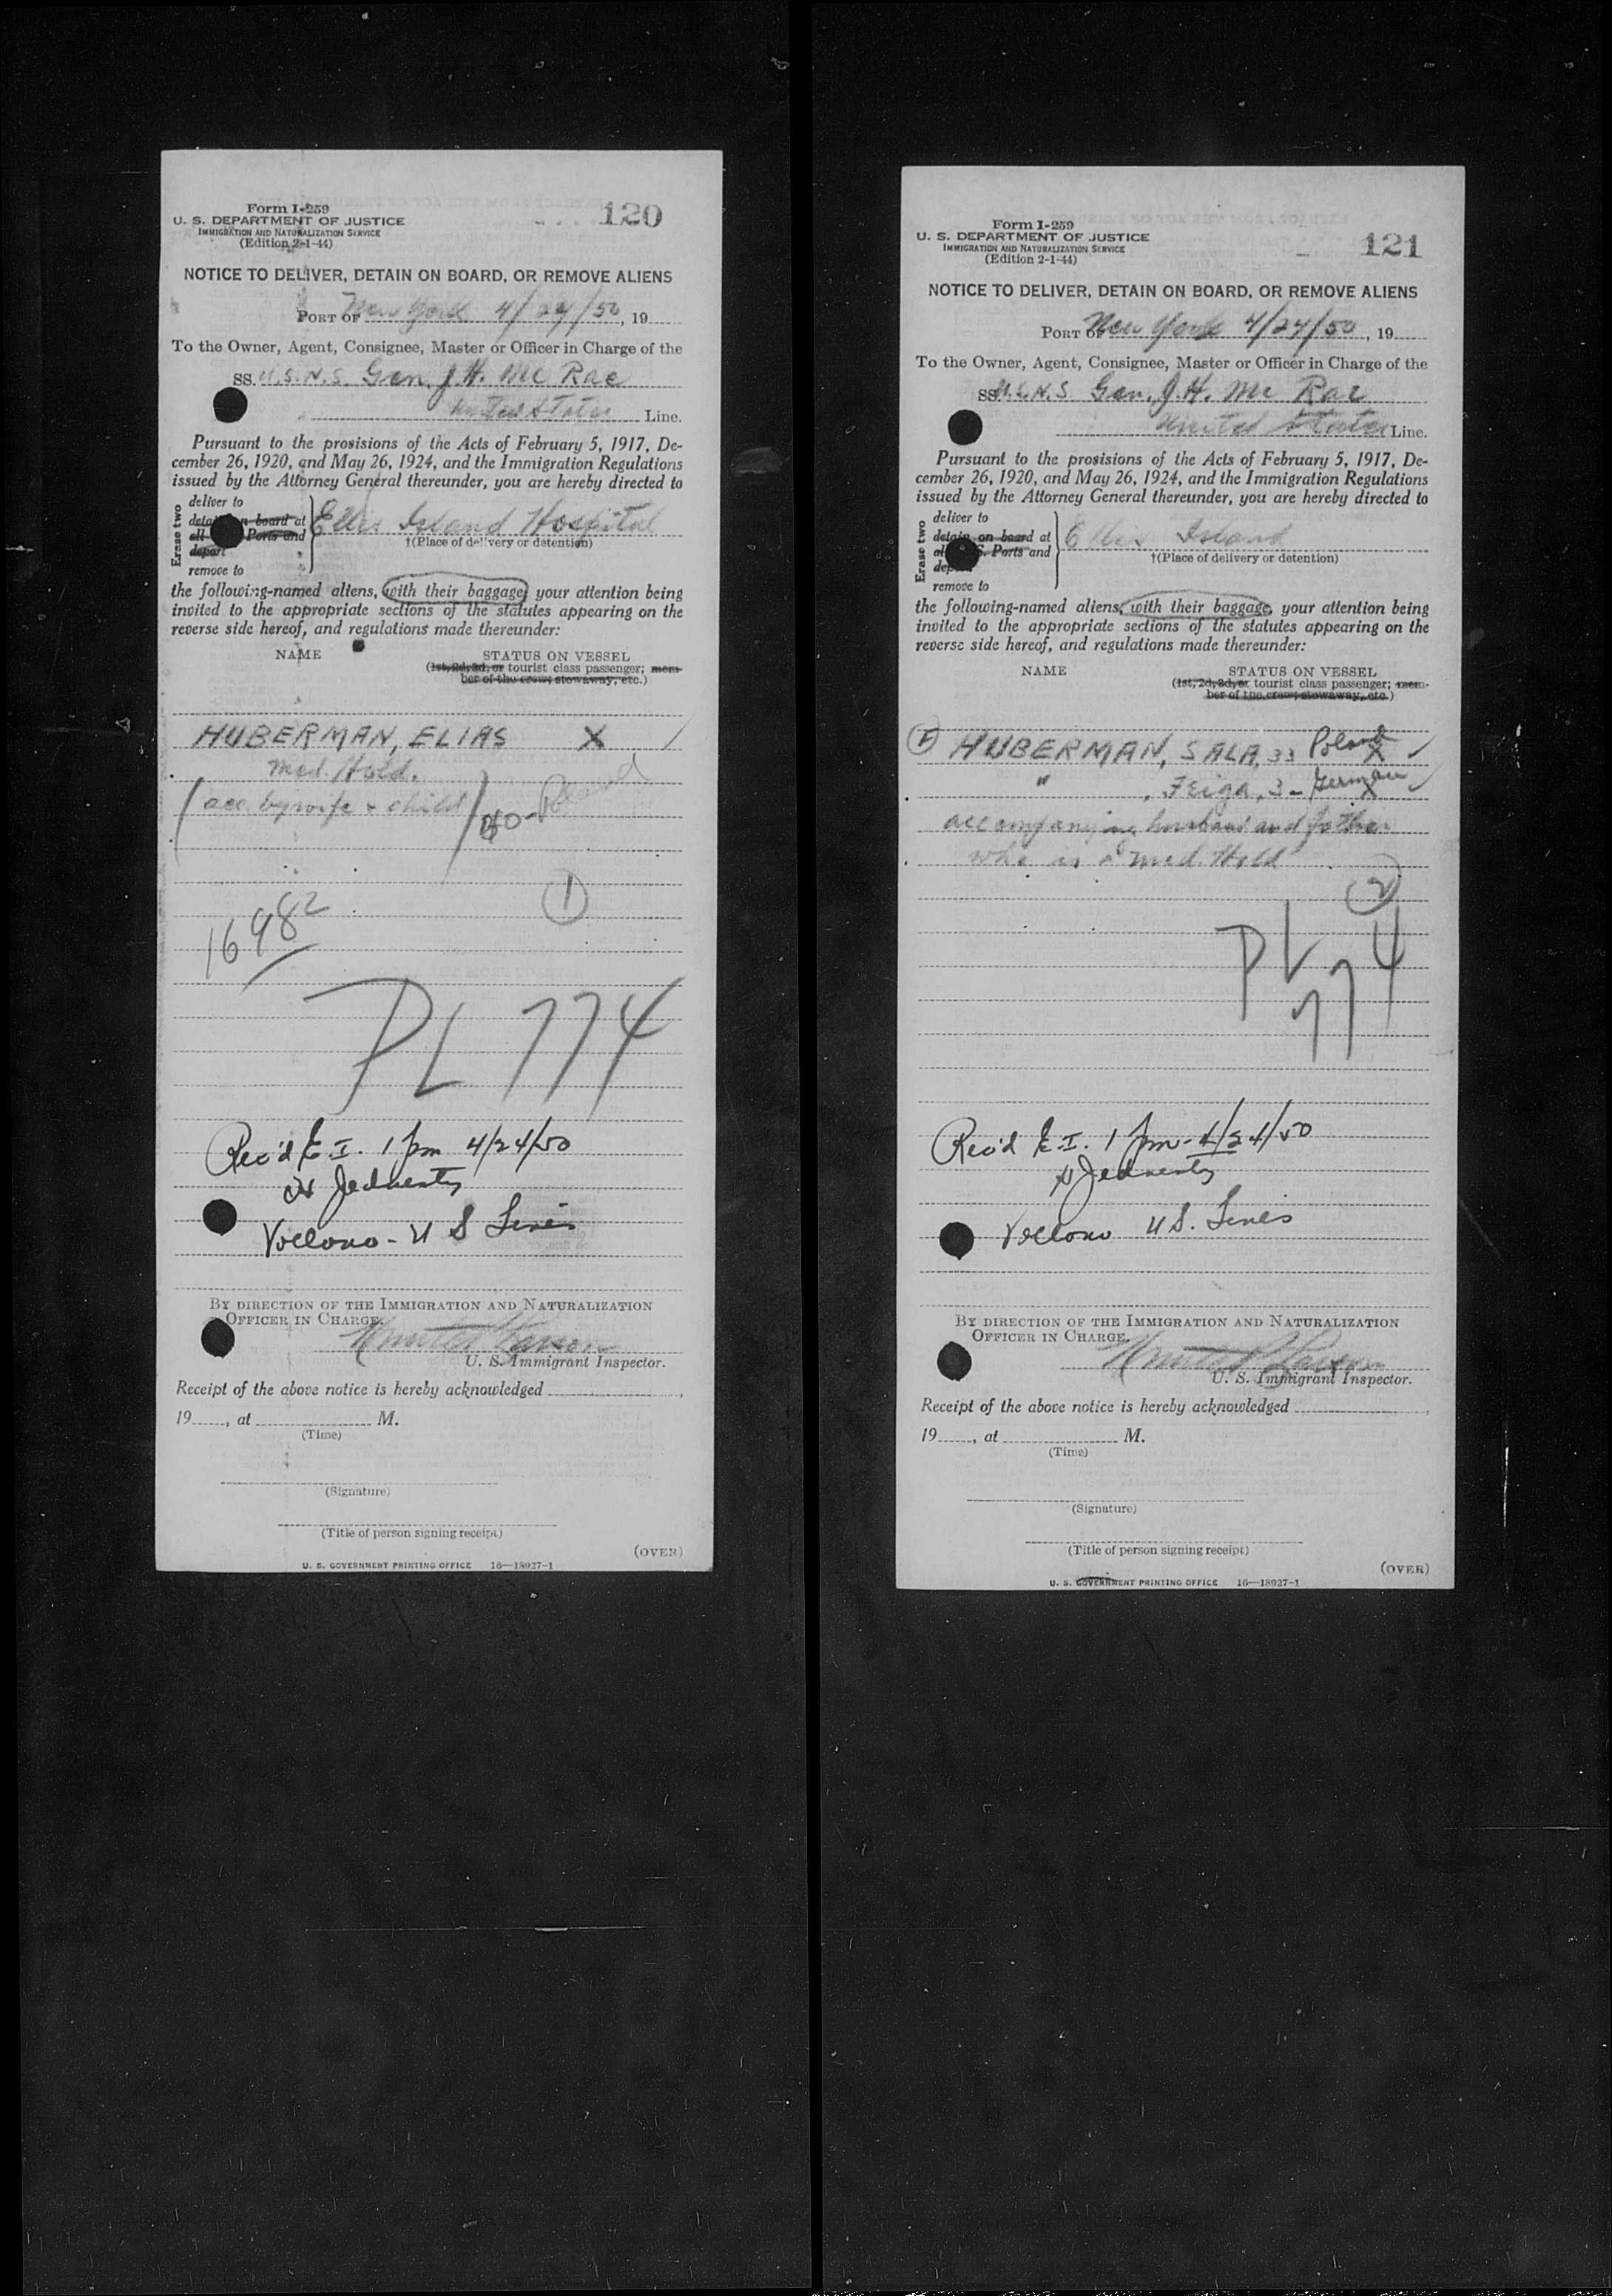 Form I-259
U. S. DEPARTMENT OF JUSTICE
IMMIGRATION AND NATURALIZATION SERVICE
(Edition 2-1-44)
120
NOTICE TO DELIVER, DETAIN ON BOARD, OR REMOVE ALIENS
PORT OF New York 4/24/50, 19
To the Owner, Agent, Consignee, Master or Officer in Charge of the
SS. U.S.N.S. Gen. J.H. Mc Rae
United States Line.
Pursuant to the provisions of the Acts of February 5, 1917, De-
cember 26, 1920, and May 26, 1924, and the Immigration Regulations
issued by the Attorney General thereunder, you are hereby directed to
Erase two
deliver to
on board at
all Ports and
depart
remove to
Ellis Island Hospital
†(Place of delivery or detention)
the following-named aliens, with their baggage, your attention being
invited to the appropriate sections of the statutes appearing on the
reverse side hereof, and regulations made thereunder:
NAME
STATUS ON VESSEL
(1st, 2d, 3d, or tourist class passenger; mem-
ber of the crew; stowaway, etc.)
HUBERMAN, ELIAS X
Med. Hold.
(acc. by wife & child) 40 - Poland
1
16982
PL 774
Rec'd E I. 1 pm 4/24/50
Vollono - U S Lines
BY DIRECTION OF THE IMMIGRATION AND NATURALIZATION
OFFICER IN CHARGE.
U. S. Immigrant Inspector.
Receipt of the above notice is hereby acknowledged
19, at M.
(Time)
(Signature)
(Title of person signing receipt)
(OVER)
U. S. GOVERNMENT PRINTING OFFICE 16—18927-1
Form I-259
U. S. DEPARTMENT OF JUSTICE
IMMIGRATION AND NATURALIZATION SERVICE
(Edition 2-1-44)
121
NOTICE TO DELIVER, DETAIN ON BOARD, OR REMOVE ALIENS
PORT OF New York 4/24/50, 19
To the Owner, Agent, Consignee, Master or Officer in Charge of the
SS. U.S.N.S. Gen. J.H. Mc Rae
United States Line.
Pursuant to the provisions of the Acts of February 5, 1917, De-
cember 26, 1920, and May 26, 1924, and the Immigration Regulations
issued by the Attorney General thereunder, you are hereby directed to
Erase two
deliver to
detain on board at
Ports and
remove to
Ellis Island
†(Place of delivery or detention)
the following-named aliens, with their baggage, your attention being
invited to the appropriate sections of the statutes appearing on the
reverse side hereof, and regulations made thereunder:
NAME
STATUS ON VESSEL
(1st, 2d, 3d, or tourist class passenger; mem-
ber of the crew; stowaway, etc.)
HUBERMAN, SALA, 33 Poland X
" , Feiga, 3 - German X
accompanying husband and father
who is a Med. Hold
2
PL 774
Rec'd E I. 1 pm - 4/24/50
Vollono U S. Lines
BY DIRECTION OF THE IMMIGRATION AND NATURALIZATION
OFFICER IN CHARGE.
U. S. Immigrant Inspector.
Receipt of the above notice is hereby acknowledged
19, at M.
(Time)
(Signature)
(Title of person signing receipt)
(OVER)
U. S. GOVERNMENT PRINTING OFFICE 16—18927-1